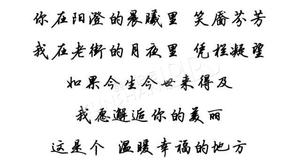 你在阳澄的晨曦里 笑靥芬芳
我在老街的月夜里 凭栏凝望
如果今生今世来得及
我愿邂逅你的美丽
这是个 温暖幸福的地方